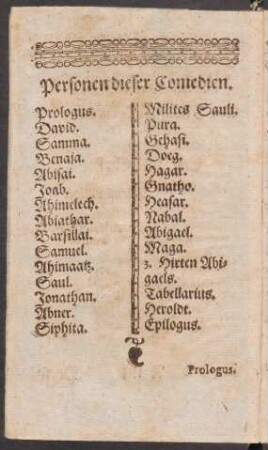 Personen dieser Comedien.
Prologus.
David.
Samma.
Benaja.
Abisai.
Joab.
Ahimelech.
Abiathar.
Barsillai.
Samuel.
Ahimaatz.
Saul.
Jonathan.
Abner.
Siphita.
Milites Sauli.
Pura.
Gehasi.
Doeg.
Hagar.
Gnatho.
Heasar.
Nabal.
Abigael.
Maga.
3. Hirten Abi-
gaels.
Tabellarius.
Heroldt.
Epilogus.
Prologus.